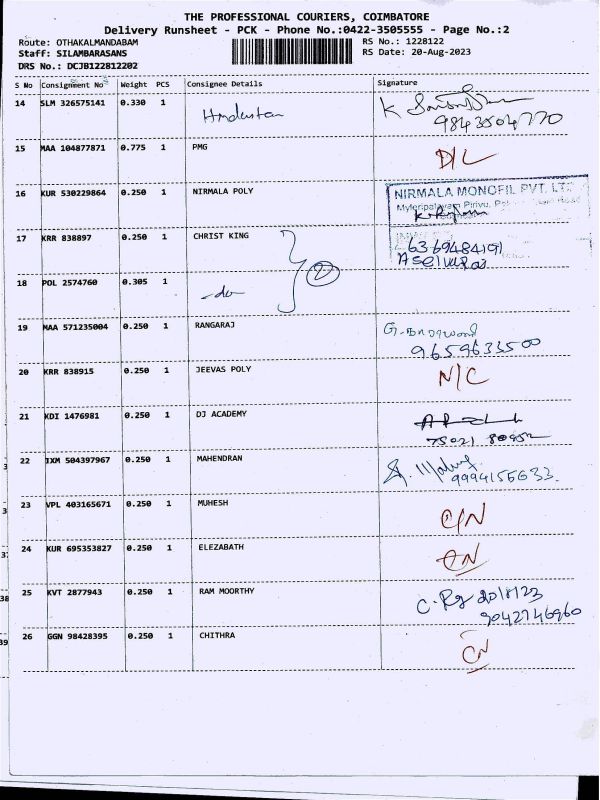 THE PROFESSIONAL COURIERS, COIMBATORE
Delivery Runsheet - PCK - Phone No.:0422-3505555 - Page No.:2
Route: OTHAKALMANDABAM RS No.: 1228122
Staff: SILAMBARASANS RS Date: 20-Aug-2023
DRS No.: DCJB122812202
S No Consignment No Weight PCS Consignee Details Signature
14 SLM 326575141 0.330 1 Hindustan K 9843504770
15 MAA 104877871 0.775 1 PMG D/L
16 KUR 530229864 0.250 1 NIRMALA POLY NIRMALA MONOFIL PVT. LT
Pirivu, Road
17 KRR 838897 0.250 1 CHRIST KING 6369484191
18 POL 2574760 0.305 1 -do- 2
19 MAA 571235004 0.250 1 RANGARAJ G.
9659633500
20 KRR 838915 0.250 1 JEEVAS POLY N/C
21 KDI 1476981 0.250 1 DJ ACADEMY
75021
22 IXM 504397967 0.250 1 MAHENDRAN 9994155633.
23 VPL 403165671 0.250 1 MUHESH C/N
24 KUR 695353827 0.250 1 ELEZABATH CN
25 KVT 2877943 0.250 1 RAM MOORTHY C. 20/8/23
9042746960
26 GGN 98428395 0.250 1 CHITHRA CN